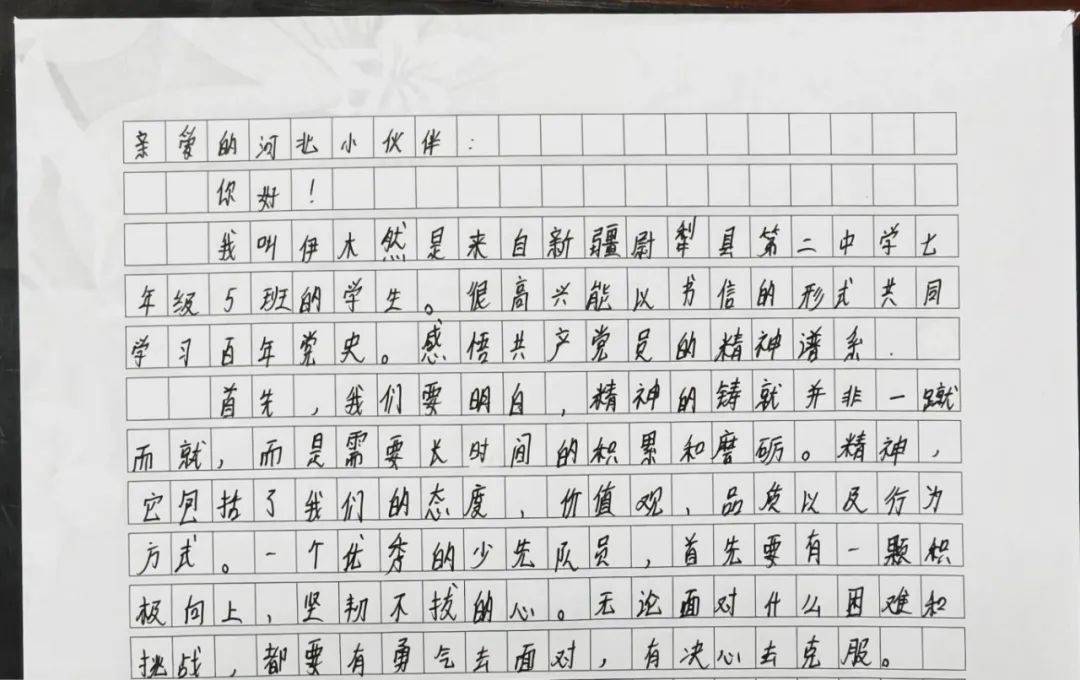 亲爱的河北小伙伴：
你好！
我叫伊木然是来自新疆尉犁县第二中学七
年级5班的学生。很高兴能以书信的形式共同
学习百年党史。感悟共产党员的精神谱系.
首先，我们要明白，精神的铸就并非一蹴
而就，而是需要长时间的积累和磨砺。精神，
它包括了我们的态度、价值观、品质以及行为
方式。一个优秀的少先队员，首先要有一颗积
极向上、坚韧不拔的心。无论面对什么困难和
挑战，都要有勇气去面对，有决心去克服。